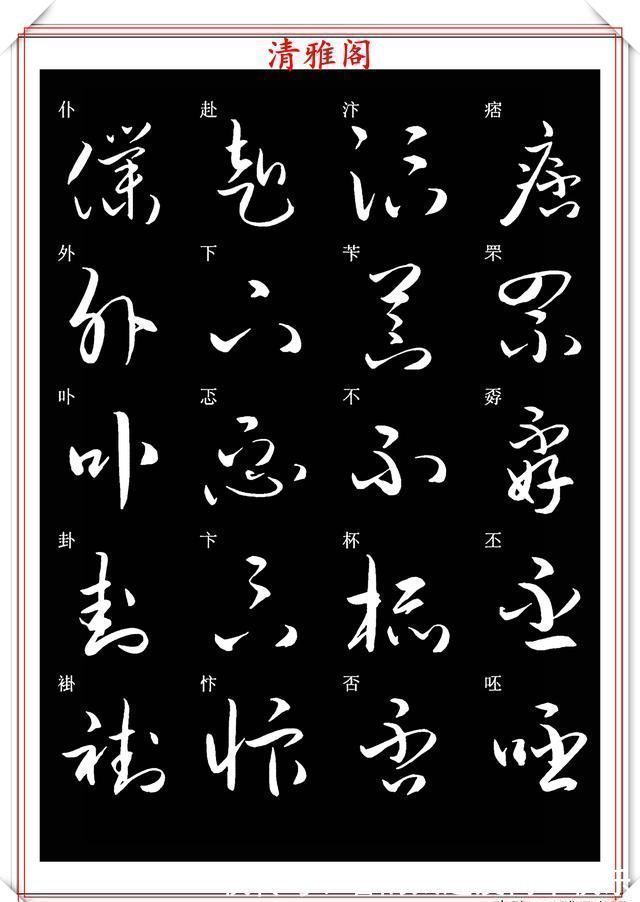 清雅阁
仆 赴 汴 痞
外 下 苄 罘
卟 忑 不 孬
卦 卞 杯 丕
褂 忭 否 呸